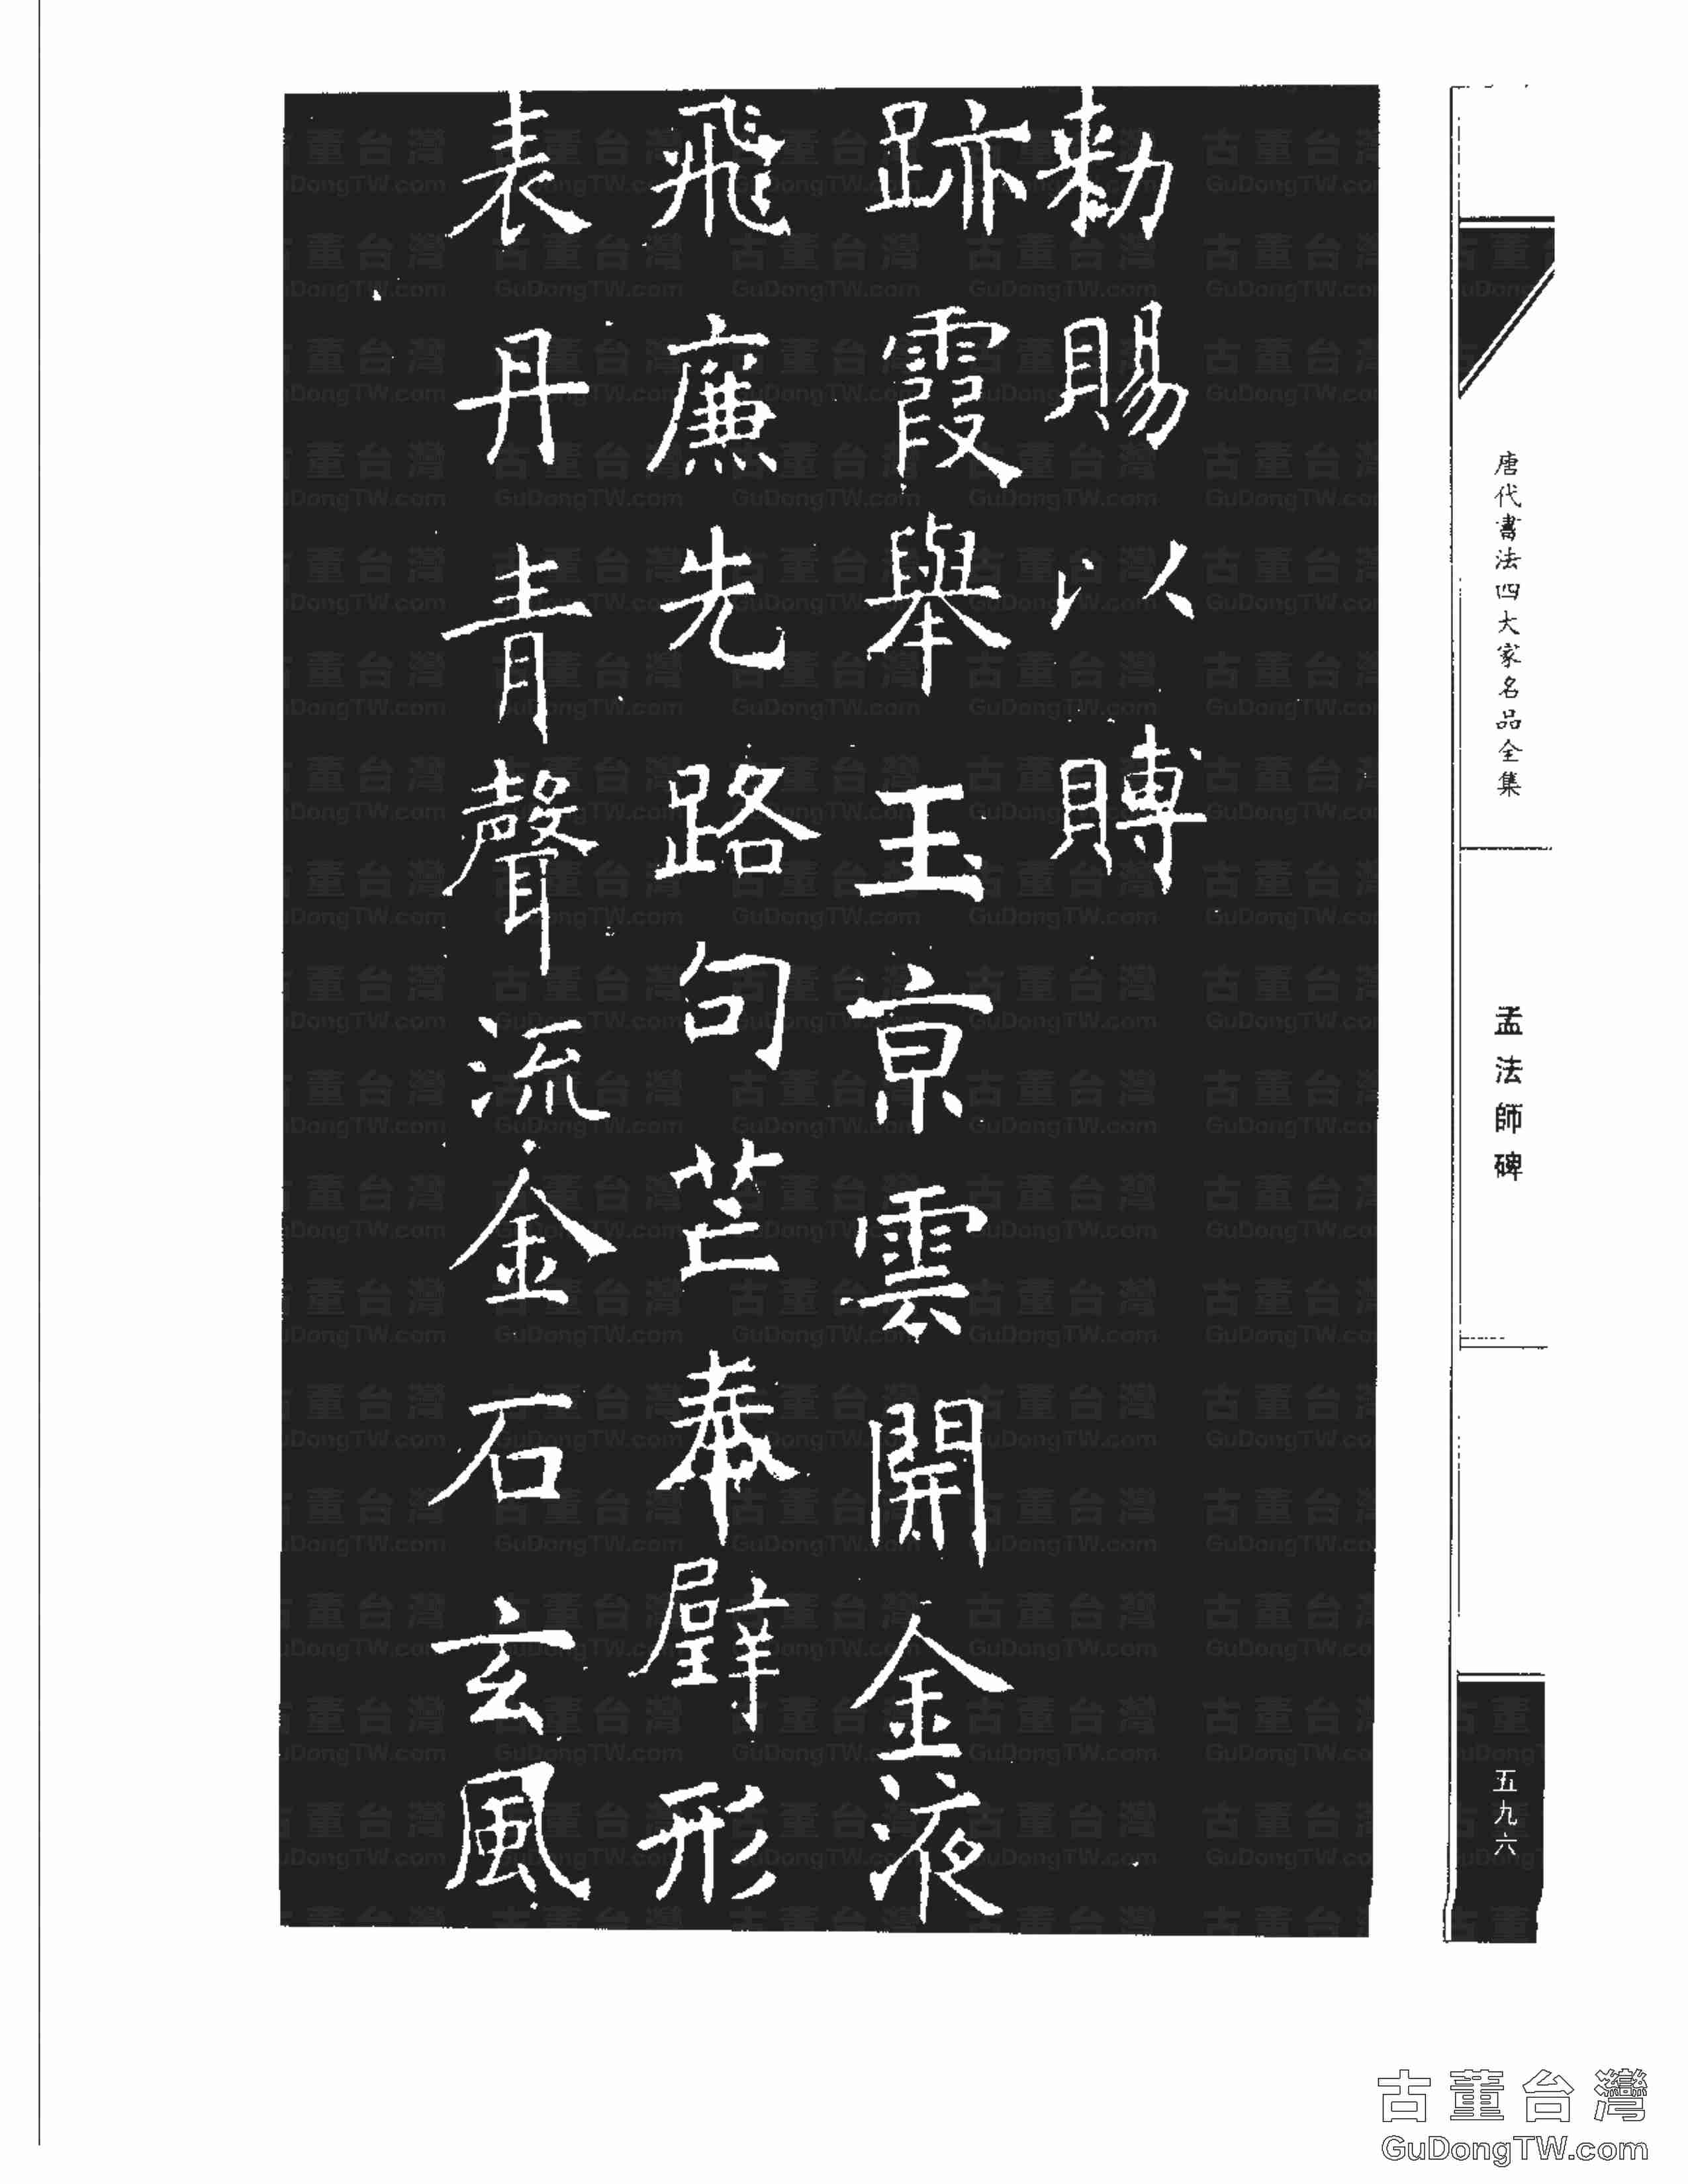 勑賜以賻
跡霞舉玉京雲開金液
飛廉先路句芒奉壁形
表丹青聲流金石玄風
唐代書法四大家名品全集
孟法師碑
五九六
古董台灣
GuDongTW.com